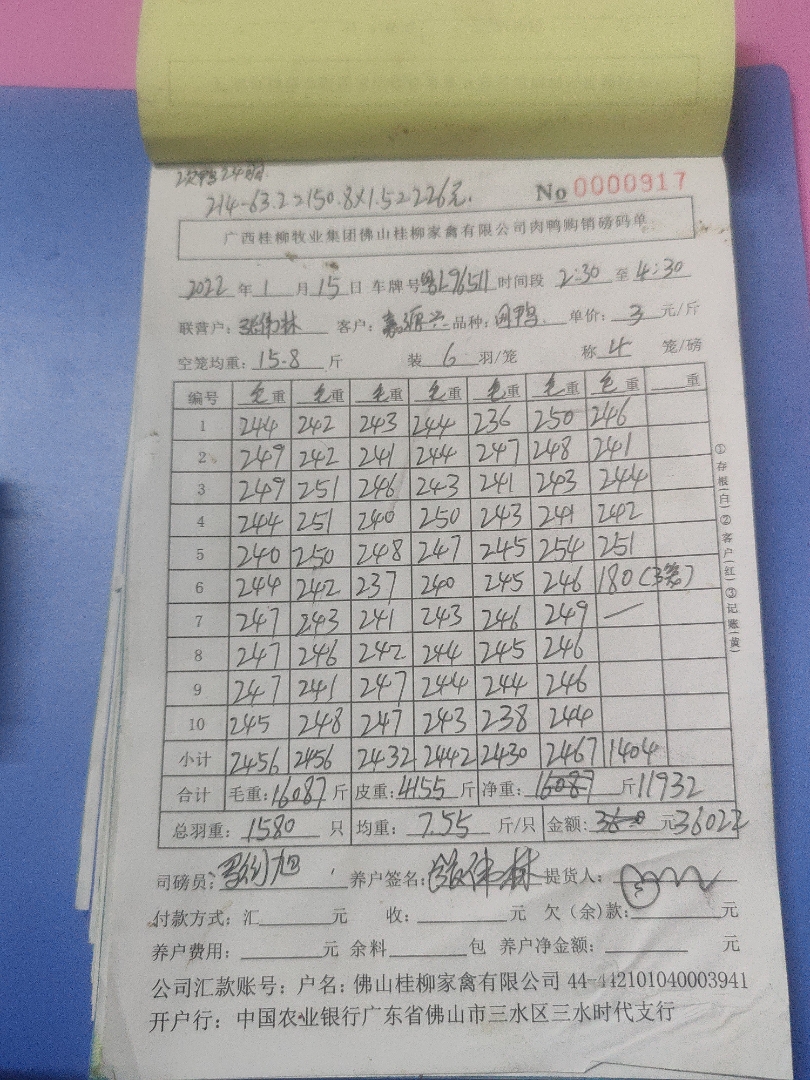 次鸭24羽
214-63.2=150.8×1.5=226元.
No 0000917
广西桂柳牧业集团佛山桂柳家禽有限公司肉鸭购销磅码单
2022 年 1 月 15 日 车牌号 粤L96511 时间段 2:30 至 4:30
联营户: 张伟林 客户: 品种: 肉鸭 单价: 3 元/斤
空笼均重: 15.8 斤 装 6 羽/笼 称 4 笼/磅
编号 毛重 毛重 毛重 毛重 毛重 毛重 毛重 重
1 244 242 243 244 236 250 246
2 249 242 241 244 247 248 241
3 249 251 246 243 241 243 244
4 244 251 240 250 243 241 242
5 240 250 248 247 245 254 251
6 244 242 237 240 245 246 180(3笼)
7 247 243 241 243 246 249 —
8 247 246 242 244 245 246
9 247 241 247 244 244 246
10 245 248 247 243 238 244
小计 2456 2456 2432 2442 2430 2467 1404
合计 毛重: 16087 斤 皮重: 4155 斤 净重: 16087 斤 11932
总羽重: 1580 只 均重: 7.55 斤/只 金额: 元 36022
司磅员: 养户签名: 张伟林 提货人:
付款方式: 汇 元 收: 元 欠(余)款: 元
养户费用: 元 余料 包 养户净金额: 元
公司汇款账号: 户名: 佛山桂柳家禽有限公司 44-442101040003941
开户行: 中国农业银行广东省佛山市三水区三水时代支行
①存根(白)②客户(红)③记账(黄)